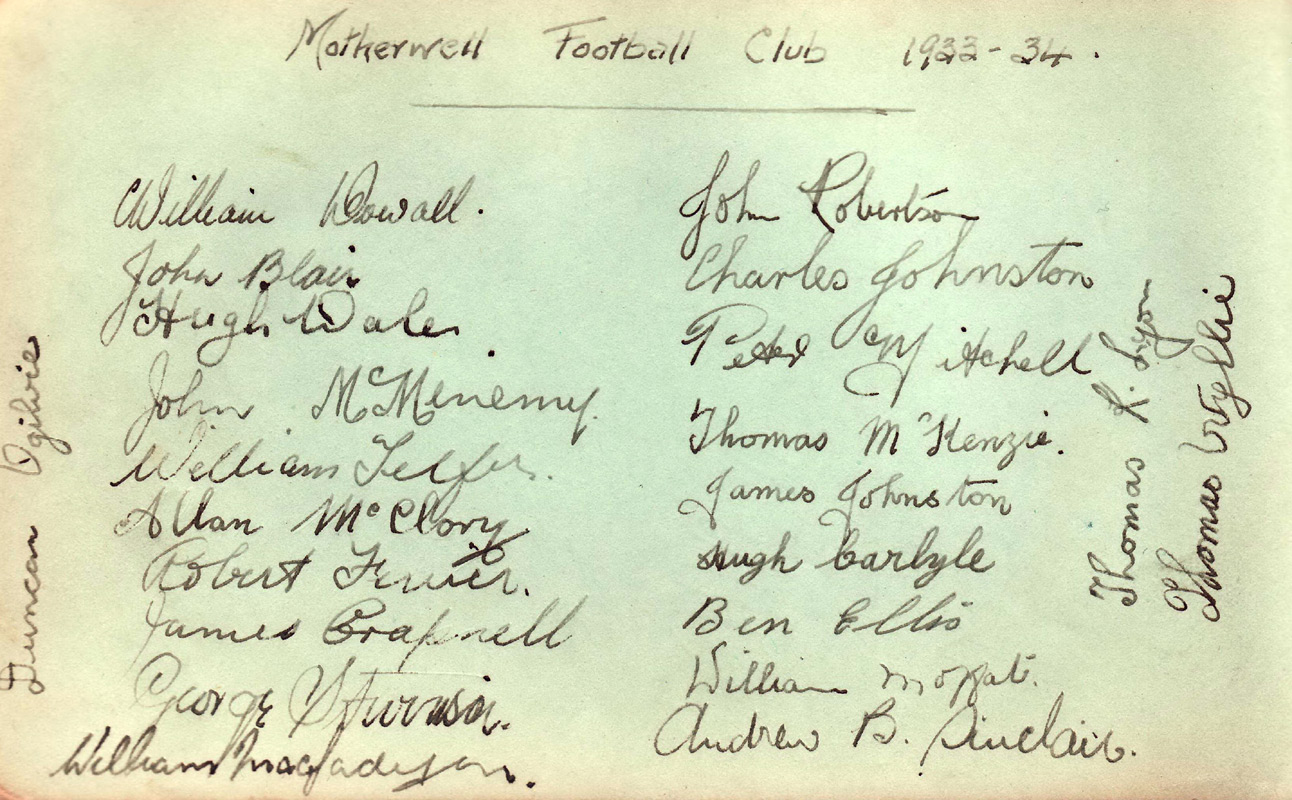 Motherwell Football Club 1933-34.
William Dowall.
John Blair
Hugh Wales
John McMenemy
William Telfer.
Allan McClory
Robert Ferrier.
James Crapnell
George Stevenson.
William MacFadyen.
Duncan Ogilvie
John Robertson
Charles Johnston
Peter Mitchell
Thomas McKenzie.
James Johnston
Hugh Carlyle
Ben Ellis
William Moffat.
Andrew B. Sinclair.
Thomas K. Lyon
Thomas Wyllie